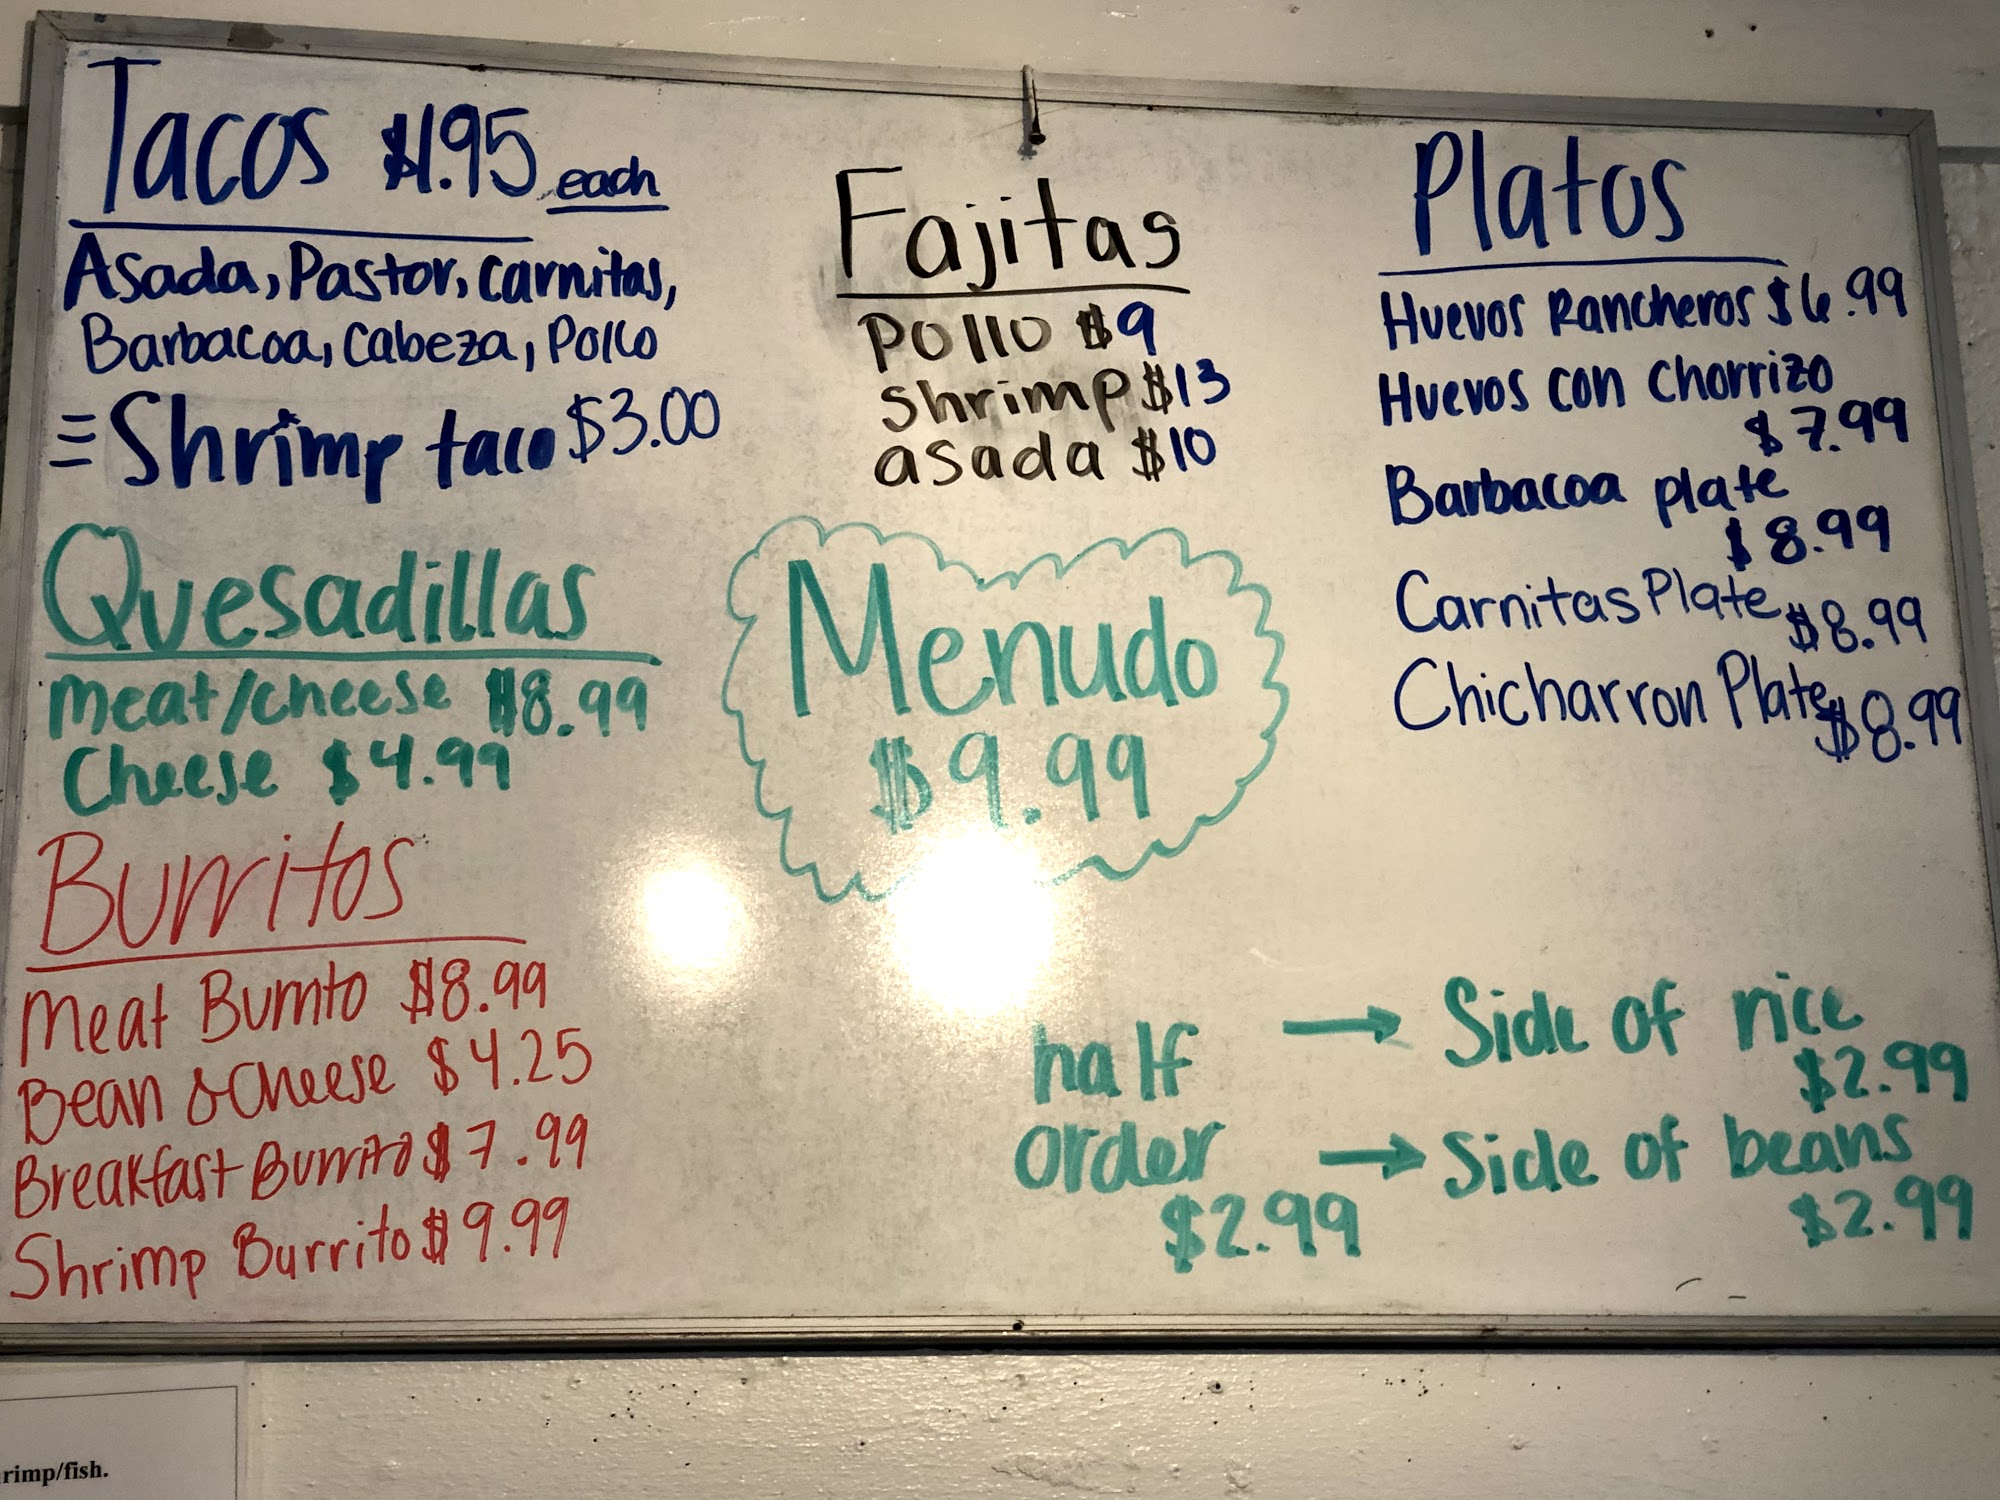 Tacos $1.95 each
Asada, Pastor, Carnitas,
Barbacoa, Cabeza, Pollo
Shrimp taco $3.00
Quesadillas
Meat/cheese $8.99
Cheese $4.99
Burritos
Meat Burrito $8.99
Bean & Cheese $4.25
Breakfast Burrito $7.99
Shrimp Burrito $9.99
Fajitas
Pollo $9
Shrimp $13
asada $10
Menudo
$9.99
Platos
Huevos Rancheros $6.99
Huevos con Chorrizo
$7.99
Barbacoa plate
$8.99
Carnitas Plate $8.99
Chicharron Plate $8.99
half → Side of rice
$2.99
order → Side of beans
$2.99 $2.99
rimp/fish.